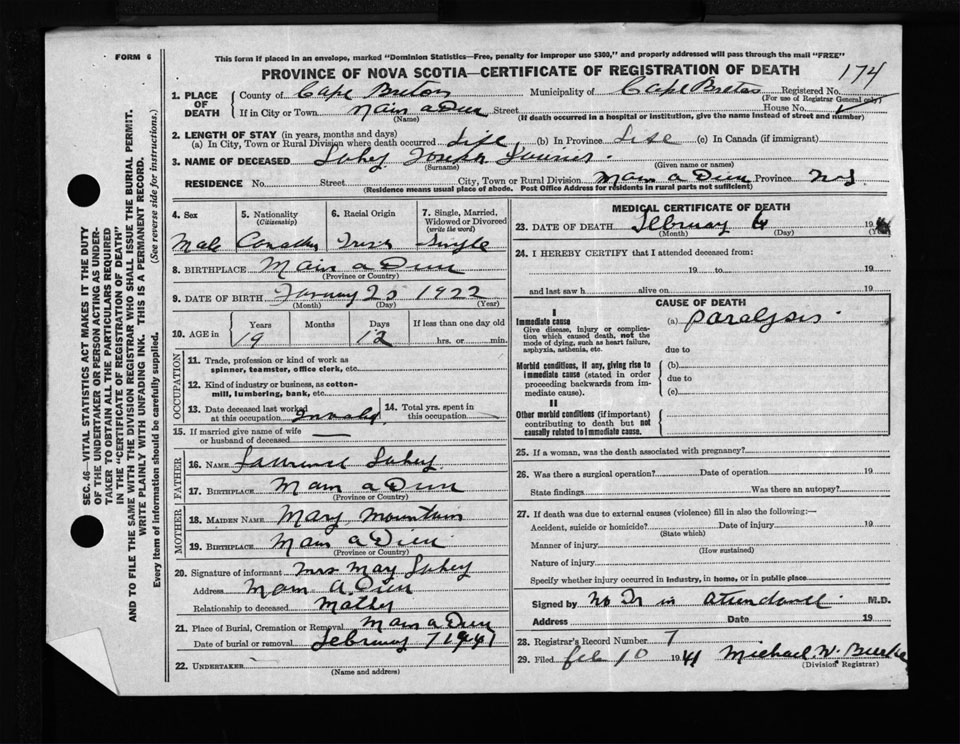 FORM 6
This form if placed in an envelope, marked "Dominion Statistics—Free, penalty for improper use $300," and properly addressed will pass through the mail "FREE"
PROVINCE OF NOVA SCOTIA—CERTIFICATE OF REGISTRATION OF DEATH
174
1. PLACE OF DEATH
County of Cape Breton Municipality of Cape Breton Registered No.
(For use of Registrar General only)
If in City or Town Main a Dieu Street House No.
(Name) (If death occurred in a hospital or institution, give the name instead of street and number)
2. LENGTH OF STAY (in years, months and days)
(a) In City, Town or Rural Division where death occurred Life (b) in Province Life (c) In Canada (if immigrant)
3. NAME OF DECEASED Lahey Joseph
(Surname) (Given name or names)
RESIDENCE No. Street City, Town or Rural Division Main a Dieu Province N.S
(Residence means usual place of abode. Post Office Address for residents in rural parts not sufficient)
4. Sex
Male
5. Nationality (Citizenship)
6. Racial Origin
Irish
7. Single, Married, Widowed or Divorced (write the word)
Single
8. BIRTHPLACE Main a Dieu
(Province or Country)
9. DATE OF BIRTH January 25 1922
(Month) (Day) (Year)
10. AGE in
Years Months Days If less than one day old
19 12 hrs. or min.
OCCUPATION
11. Trade, profession or kind of work as spinner, teamster, office clerk, etc.
12. Kind of industry or business, as cotton-mill, lumbering, bank, etc.
13. Date deceased last worked at this occupation Invalid
14. Total yrs. spent in this occupation
15. If married give name of wife or husband of deceased
FATHER
16. NAME Lawrence Lahey
17. BIRTHPLACE Main a Dieu
(Province or Country)
MOTHER
18. MAIDEN NAME Mary Mountain
19. BIRTHPLACE Main a Dieu
(Province or Country)
20. Signature of informant Mrs May Lahey
Address Main A Dieu
Relationship to deceased Mother
21. Place of Burial, Cremation or Removal Main a Dieu
Date of burial or removal February 7 1941
22. UNDERTAKER
(Name and address)
MEDICAL CERTIFICATE OF DEATH
23. DATE OF DEATH February 6 19
(Month) (Day) (Year)
24. I HEREBY CERTIFY that I attended deceased from:
19 to 19
and last saw h alive on 19
CAUSE OF DEATH
I
Immediate cause
Give disease, injury or complication which caused death, not the mode of dying, such as heart failure, asphyxia, asthenia, etc.
(a) Paralysis
due to
Morbid conditions, if any, giving rise to immediate cause (stated in order proceeding backwards from immediate cause).
(b)
due to
(c)
II
Other morbid conditions (if important) contributing to death but not causally related to immediate cause.
25. If a woman, was the death associated with pregnancy?
26. Was there a surgical operation? Date of operation 19
State findings Was there an autopsy?
27. If death was due to external causes (violence) fill in also the following:—
Accident, suicide or homicide? Date of injury 19
(State which)
Manner of injury
(How sustained)
Nature of injury
Specify whether injury occurred in industry, in home, or in public place
Signed by No Dr in attendance M.D.
Address Date 19
28. Registrar's Record Number 7
29. Filed Feb 10 1941 Michael W. Burke
(Division Registrar)
SEC. 46—VITAL STATISTICS ACT MAKES IT THE DUTY
OF THE UNDERTAKER OR PERSON ACTING AS UNDER-
TAKER TO OBTAIN ALL THE PARTICULARS REQUIRED
IN THE "CERTIFICATE OF REGISTRATION OF DEATH"
AND TO FILE THE SAME WITH THE DIVISION REGISTRAR WHO SHALL ISSUE THE BURIAL PERMIT.
WRITE PLAINLY WITH UNFADING INK. THIS IS A PERMANENT RECORD.
Every item of information should be carefully supplied. (See reverse side for instructions.)